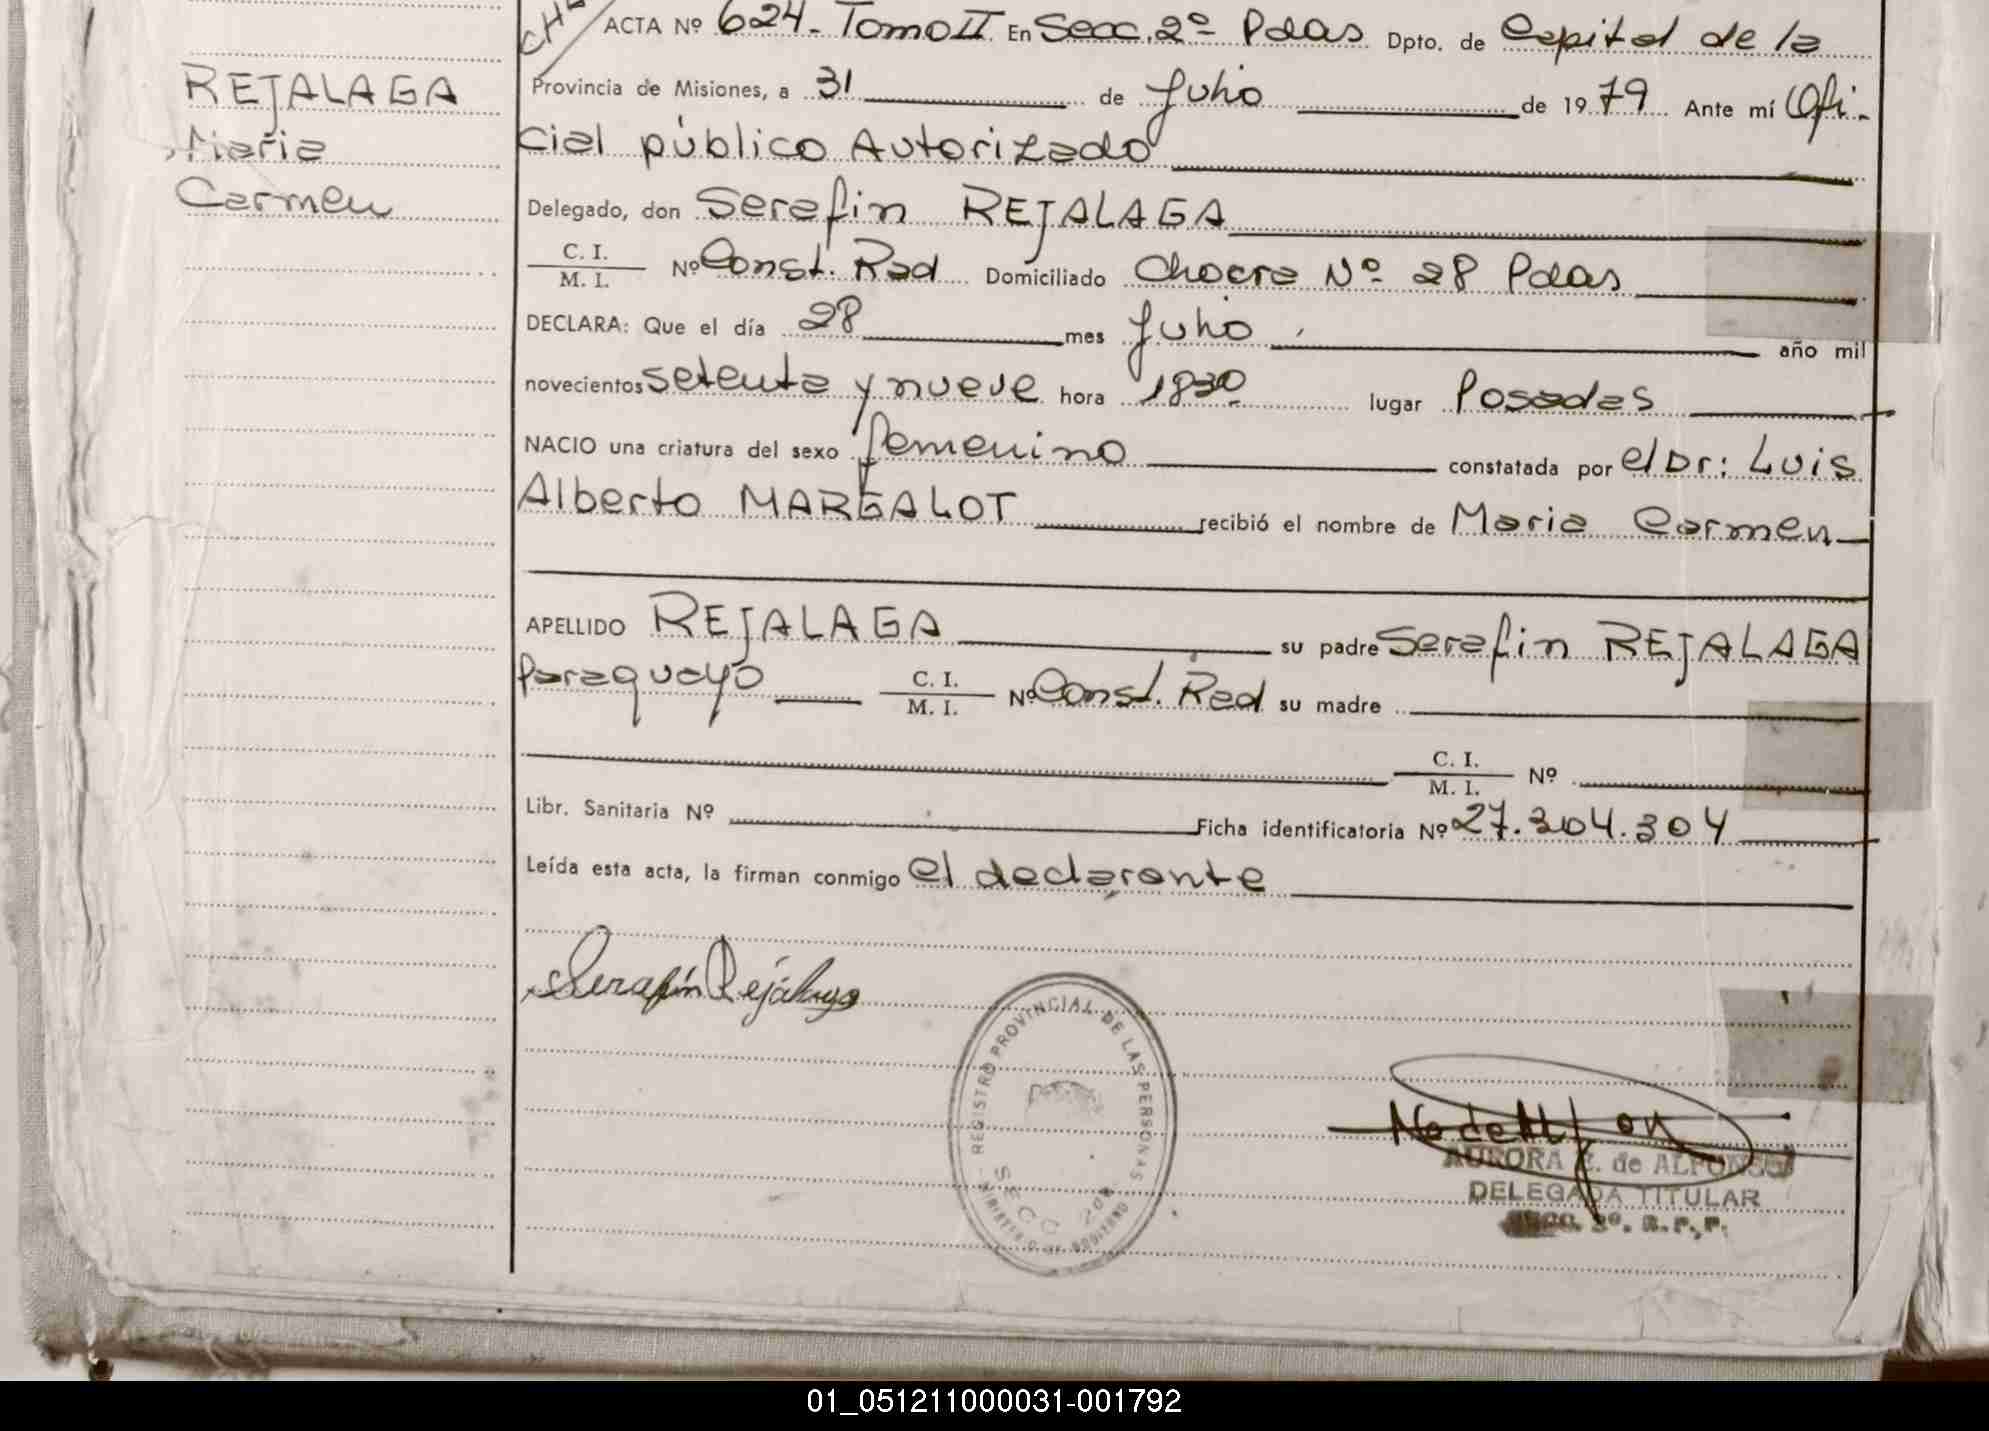 ACTA Nº 624- Tomo II En Secc. 2º- Pdas Dpto. de Capital de la
REJALAGA
Maria
Carmen
Provincia de Misiones, a 31 de Julio de 1979 Ante mí Ofi-
cial público Autorizado
Delegado, don Serafin REJALAGA
C. I.
M. I. Nº Const. Rad Domiciliado Chacra Nº 28 Pdas
DECLARA: Que el día 28 mes Julio año mil
novecientos setenta y nueve hora 1830 lugar Posadas
NACIO una criatura del sexo femenino constatada por el Dr: Luis
Alberto MARGALOT recibió el nombre de Maria Carmen
APELLIDO REJALAGA su padre Serafin REJALAGA
Paraguayo C. I.
M. I. Nº Const. Rad su madre
C. I.
M. I. Nº
Libr. Sanitaria Nº Ficha identificatoria Nº 27.304.304
Leída esta acta, la firman conmigo el declarante
Serafín Rejálaga
REGISTRO PROVINCIAL DE LAS PERSONAS
SECC 2da
MINISTERIO DE GOBIERNO
AURORA E. de ALFONSO
DELEGADA TITULAR
SECC. 2º. R.P.P.
01_051211000031-001792